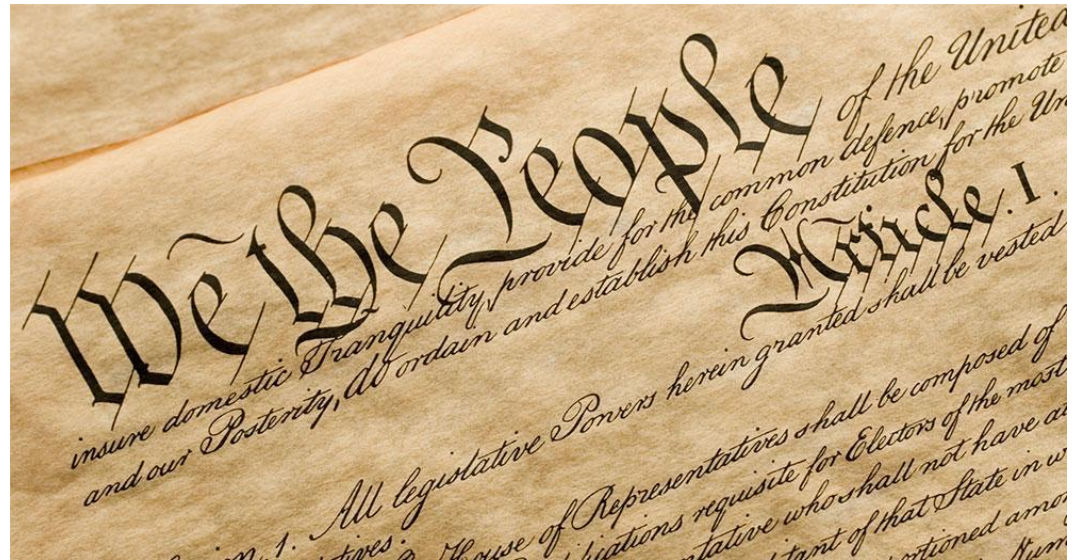 We the People of the United
insure domestic Tranquility, provide for the common defence, promote
and our Posterity, do ordain and establish this Constitution for the Un
Article. I.
ion. 1. All legislative Powers herein granted shall be vested
tives.
House of Representatives shall be composed of
ications requisite for Electors of the most
ntative who shall not have at
tant of that State in w
rtioned amon
Num